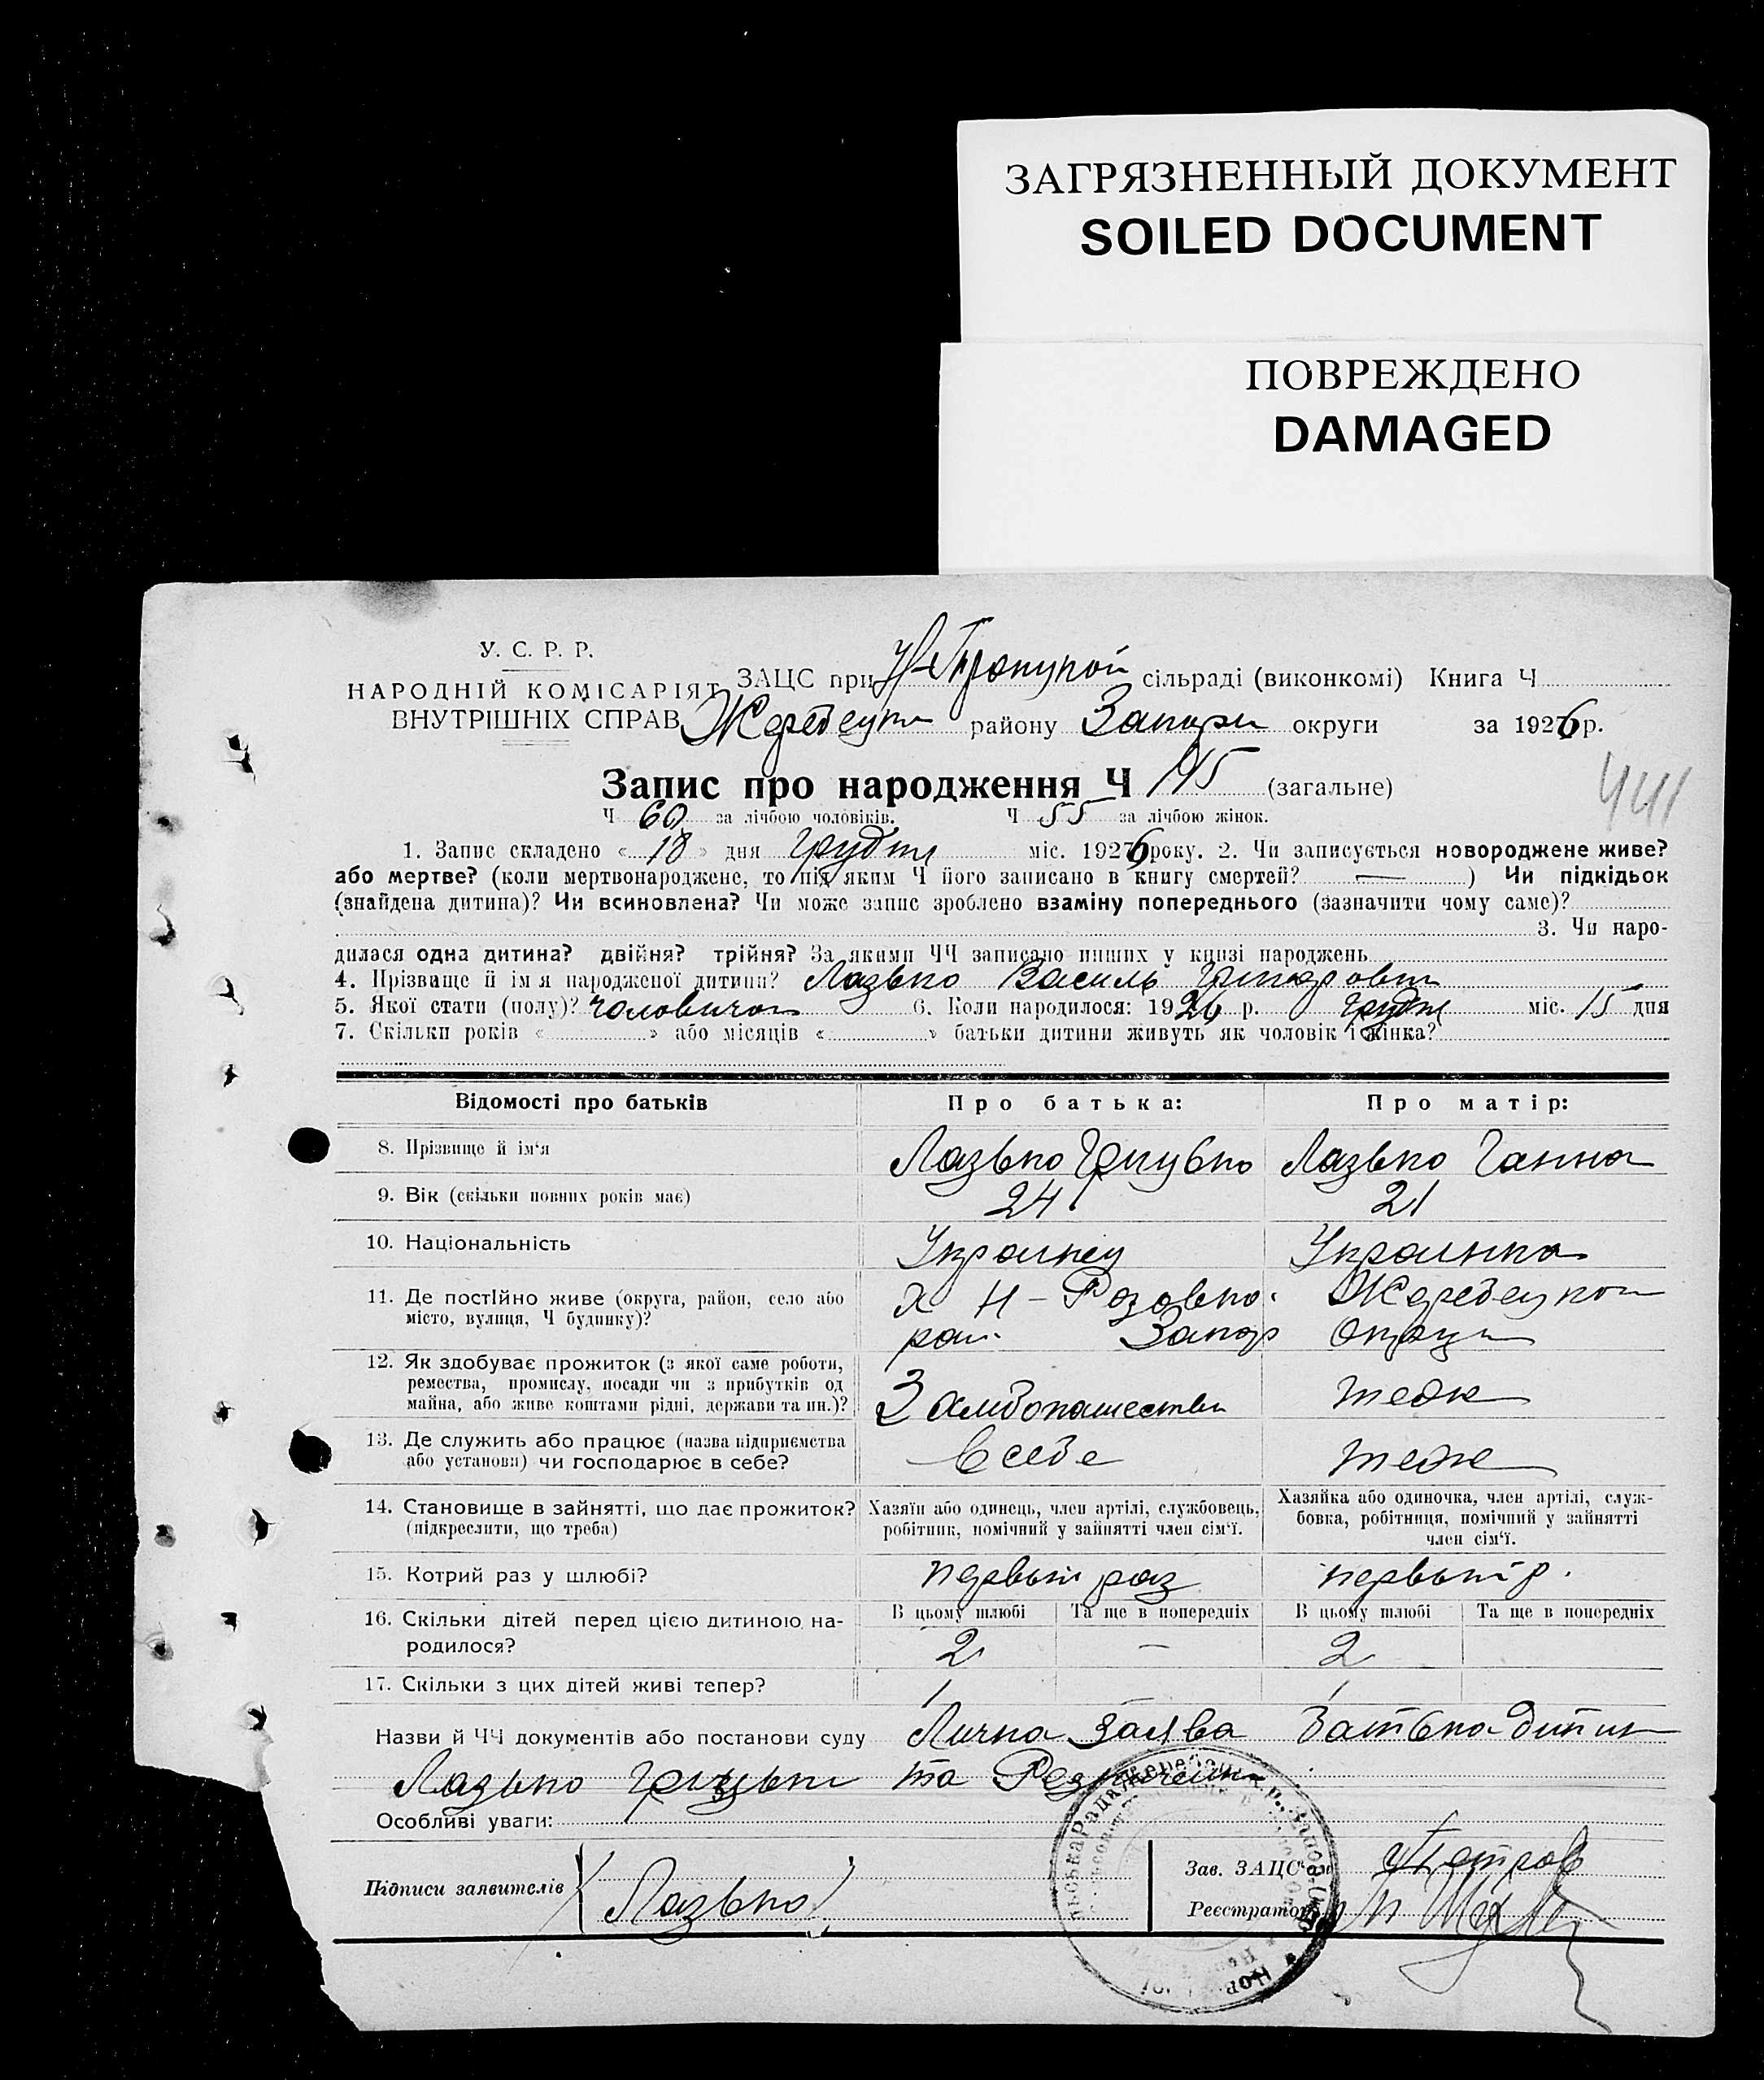 ЗАГРЯЗНЕННЫЙ ДОКУМЕНТ
SOILED DOCUMENT
ПОВРЕЖДЕНО
DAMAGED
У. С. Р. Р.
НАРОДНІЙ КОМІСАРІЯТ
ВНУТРІШНІХ СПРАВ
ЗАЦС при сільраді (виконкомі) Книга Ч
району Запорж округи за 1926 р.
Запис про народження Ч 115 (загальне)
441
Ч 60 за лічбою чоловіків. Ч 55 за лічбою жінок.
1. Запис складено « 18 » дня Грудня міс. 1926 року. 2. Чи записується новороджене живе?
або мертве? (коли мертвонароджене, то під яким Ч його записано в книгу смертей? — ) Чи підкідьок
(знайдена дитина)? Чи всиновлена? Чи може запис зроблено взаміну попереднього (зазначити чому саме)?
3. Чи наро-
дилася одна дитина? двійня? трійня? За якими ЧЧ записано инших у книзі народжень
4. Прізвище й ім'я народженої дитини? Лазько Василь Григоров
5. Якої стати (полу)? чоловичой 6. Коли народилося: 1926 р. Грудня міс. 15 дня
7. Скільки років « » або місяців « » батьки дитини живуть як чоловік і жінка?
Відомості про батьків Про батька: Про матір:
8. Прізвище й ім'я Лазько Грицько Лазько Ганна
9. Вік (скільки повних років має) 24 21
10. Національність Украінец Украинка
11. Де постійно живе (округа, район, село або х Н-Розовка Жеребецкой
місто, вулиця, Ч будинку)? рай. Запор Округи
12. Як здобуває прожиток (з якої саме роботи,
ремества, промислу, посади чи з прибутків од
майна, або живе коштами рідні, держави та ин.)? тоже
13. Де служить або працює (назва підприємства
або установи) чи господарює в себе? в себе тоже
14. Становище в зайнятті, що дає прожиток?
(підкреслити, що треба)
Хазяїн або одинець, член артілі, службовець,
робітник, помічний у зайнятті член сім'ї.
Хазяйка або одиночка, член артілі, служ-
бовка, робітниця, помічний у зайнятті
член сім'ї.
15. Котрий раз у шлюбі? первый раз первый р.
16. Скільки дітей перед цією дитиною на-
родилося?
В цьому шлюбі Та ще в попередніх В цьому шлюбі Та ще в попередніх
2 — 2
17. Скільки з цих дітей живі тепер? 1 1
Назви й ЧЧ документів або постанови суду Лична заява Батька дитини
Лазько Грицька та
Особливі уваги:
Підписи заявителів Лазько
Зав. ЗАЦС'ом Петров
Реєстратор